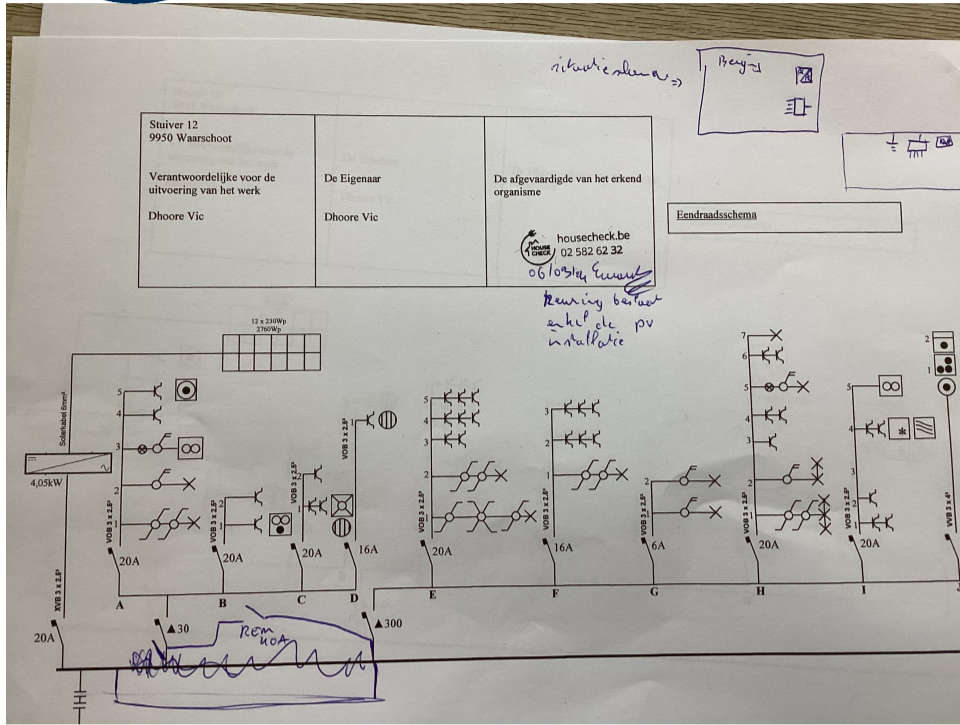 situatieschema =>
Berging
Stuiver 12
9950 Waarschoot
Verantwoordelijke voor de
uitvoering van het werk
Dhoore Vic
De Eigenaar
Dhoore Vic
De afgevaardigde van het erkend
organisme
HOUSE
CHECK
housecheck.be
02 582 62 32
keuring bestaat
enkel de pv
installatie
Eendraadsschema
12 x 230Wp
2760Wp
Solarkabel 6mm²
4,05kW
XVB 3 x 2.5²
20A
5
4
3
2
1
VOB 3 x 2.5²
20A
A
2
1
VOB 3 x 2.5²
20A
B
2
1
VOB 3 x 2.5²
20A
C
1
VOB 3 x 2.5²
16A
D
5
4
3
2
1
VOB 3 x 2.5²
20A
E
3
2
1
VOB 3 x 2.5²
16A
F
2
1
VOB 3 x 2.5²
6A
G
7
6
5
4
3
2
1
VOB 3 x 2.5²
20A
H
5
4
3
2
1
VOB 3 x 2.5²
20A
I
2
1
VVB 3 x 4²
▲30
▲300
REM
40A